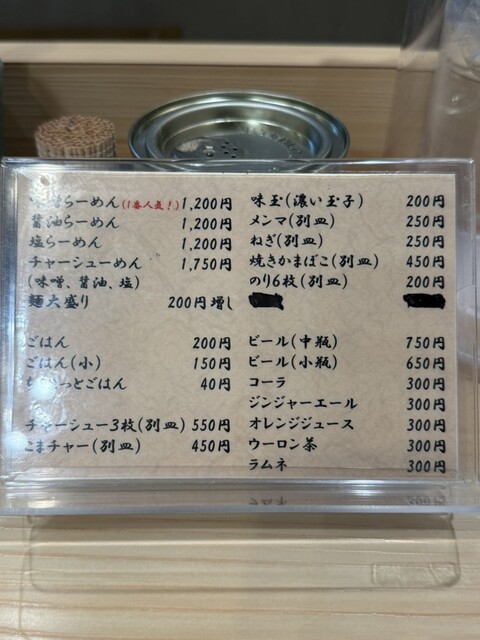 らーめん(1番人気!) 1,200円
醤油らーめん 1,200円
塩らーめん 1,200円
チャーシューめん 1,750円
(味噌、醤油、塩)
麺大盛り 200円増し
ごはん 200円
ごはん(小) 150円
ちょびっとごはん 40円
チャーシュー3枚(別皿) 550円
こまチャー(別皿) 450円
味玉(濃い玉子) 200円
メンマ(別皿) 250円
ねぎ(別皿) 250円
焼きかまぼこ(別皿) 450円
のり6枚(別皿) 200円
ビール(中瓶) 750円
ビール(小瓶) 650円
コーラ 300円
ジンジャーエール 300円
オレンジジュース 300円
ウーロン茶 300円
ラムネ 300円